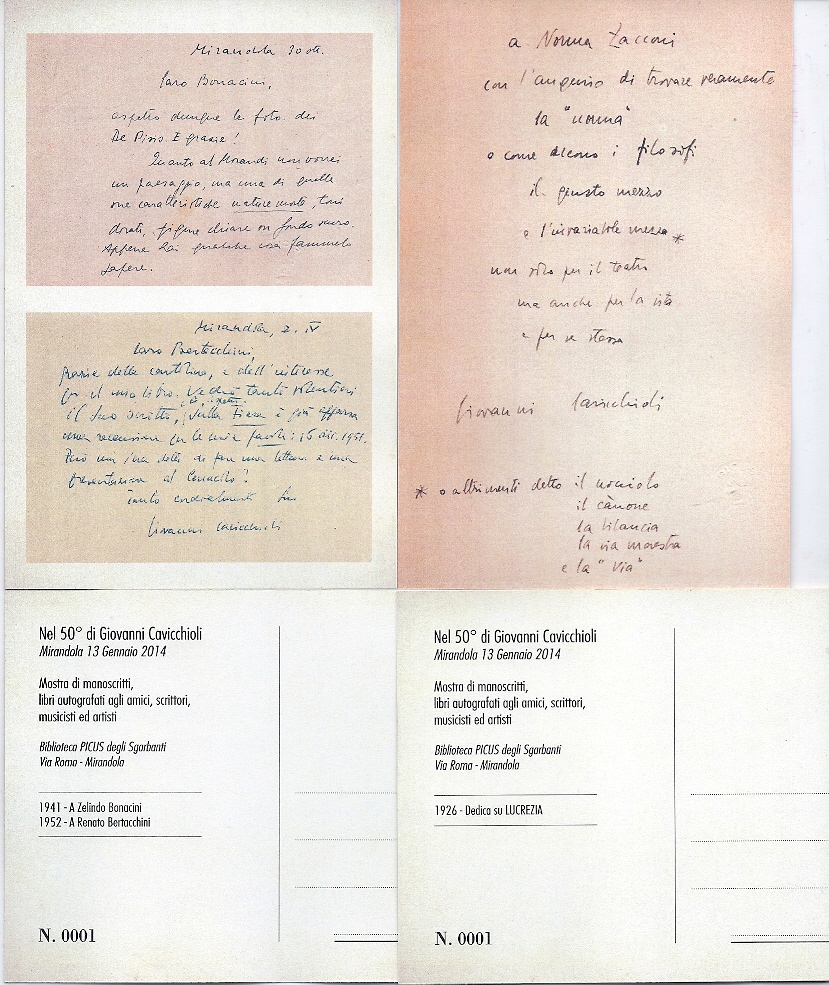 Mirandola 30 ott.
Caro Bonacini,
aspetto dunque le foto dei
De Pisis. E grazie!
Quanto al Morandi non vorrei
un paesaggio, ma una di quelle
sue caratteristiche nature morte, toni
dorati, figure chiare su fondo scuro.
Appena hai qualche cosa fammelo
sapere.
Mirandola, 2. IV
Caro Bertacchini,
grazie della cartolina, e dell'interesse
per il mio libro. Vedrò tanto volentieri
il suo scritto,
sulla Fiera è già apparsa
una recensione per le mie favole: 16 dic. 1951.
al Cenacolo?
tanto cordialmente suo
Giovanni Cavicchioli
a Norma Zacconi
con l'augurio di trovare veramente
la "norma"
o come dicono i filosofi
il giusto mezzo
e l'invariabile mezzo *
non solo per il teatro
ma anche per la vita
e per se stessa
Giovanni Cavicchioli
* o altrimenti detto il nocciolo
il cànone
la bilancia
la via maestra
e la "Via"
Nel 50° di Giovanni Cavicchioli
Mirandola 13 Gennaio 2014
Mostra di manoscritti,
libri autografati agli amici, scrittori,
musicisti ed artisti
Biblioteca PICUS degli Sgarbanti
Via Roma - Mirandola
1941 - A Zelindo Bonacini
1952 - A Renato Bertacchini
N. 0001
Nel 50° di Giovanni Cavicchioli
Mirandola 13 Gennaio 2014
Mostra di manoscritti,
libri autografati agli amici, scrittori,
musicisti ed artisti
Biblioteca PICUS degli Sgarbanti
Via Roma - Mirandola
1926 - Dedica su LUCREZIA
N. 0001